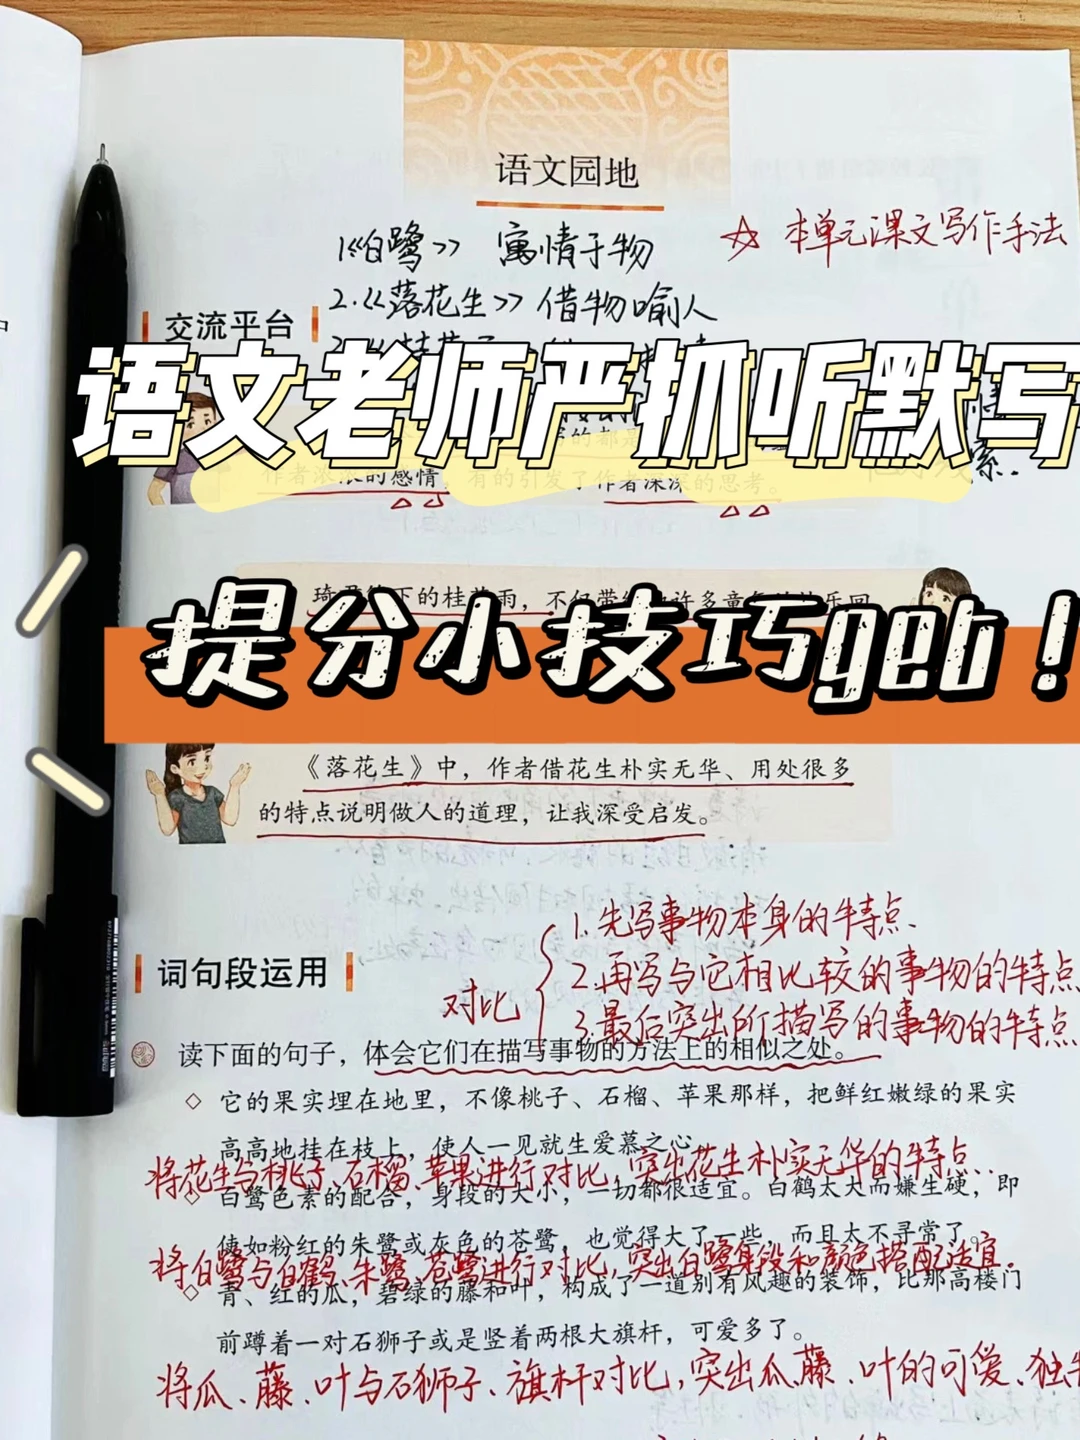 语文园地
☆ 本单元课文写作手法
1《白鹭》 寓情于物
2.《落花生》借物喻人
交流平台
语文老师严抓听默写
作者浓浓的感情,有的引发了作者深深的思考。
下的桂花雨,不仅带给
提分小技巧get!
《落花生》中,作者借花生朴实无华、用处很多
的特点说明做人的道理,让我深受启发。
词句段运用
对比
1.先写事物本身的特点.
2.再写与它相比较的事物的特点
3.最后突出所描写的事物的特点
读下面的句子,体会它们在描写事物的方法上的相似之处。
◇ 它的果实埋在地里,不像桃子、石榴、苹果那样,把鲜红嫩绿的果实
高高地挂在枝上,使人一见就生爱慕之心
将花生与桃子、石榴、苹果进行对比,突出花生朴实无华的特点.
◇ 白鹭色素的配合,身段的大小,一切都很适宜。白鹤太大而嫌生硬,即
使如粉红的朱鹭或灰色的苍鹭,也觉得大了一些,而且太不寻常了。
将白鹭与白鹤、朱鹭、苍鹭进行对比,突出白鹭身段和颜色搭配适宜.
◇ 青、红的瓜,碧绿的藤和叶,构成了一道别有风趣的装饰,比那高楼门
前蹲着一对石狮子或是竖着两根大旗杆,可爱多了。
将瓜、藤、叶与石狮子、旗杆对比,突出瓜、藤、叶的可爱、独